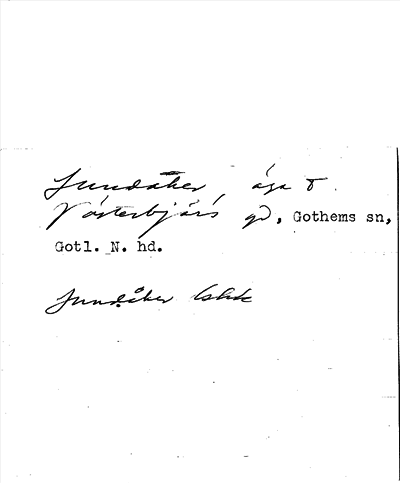 Sundåker, äga t.
Västerbjärs gd, Gothems sn,
Gotl. N. hd.
Sundåker